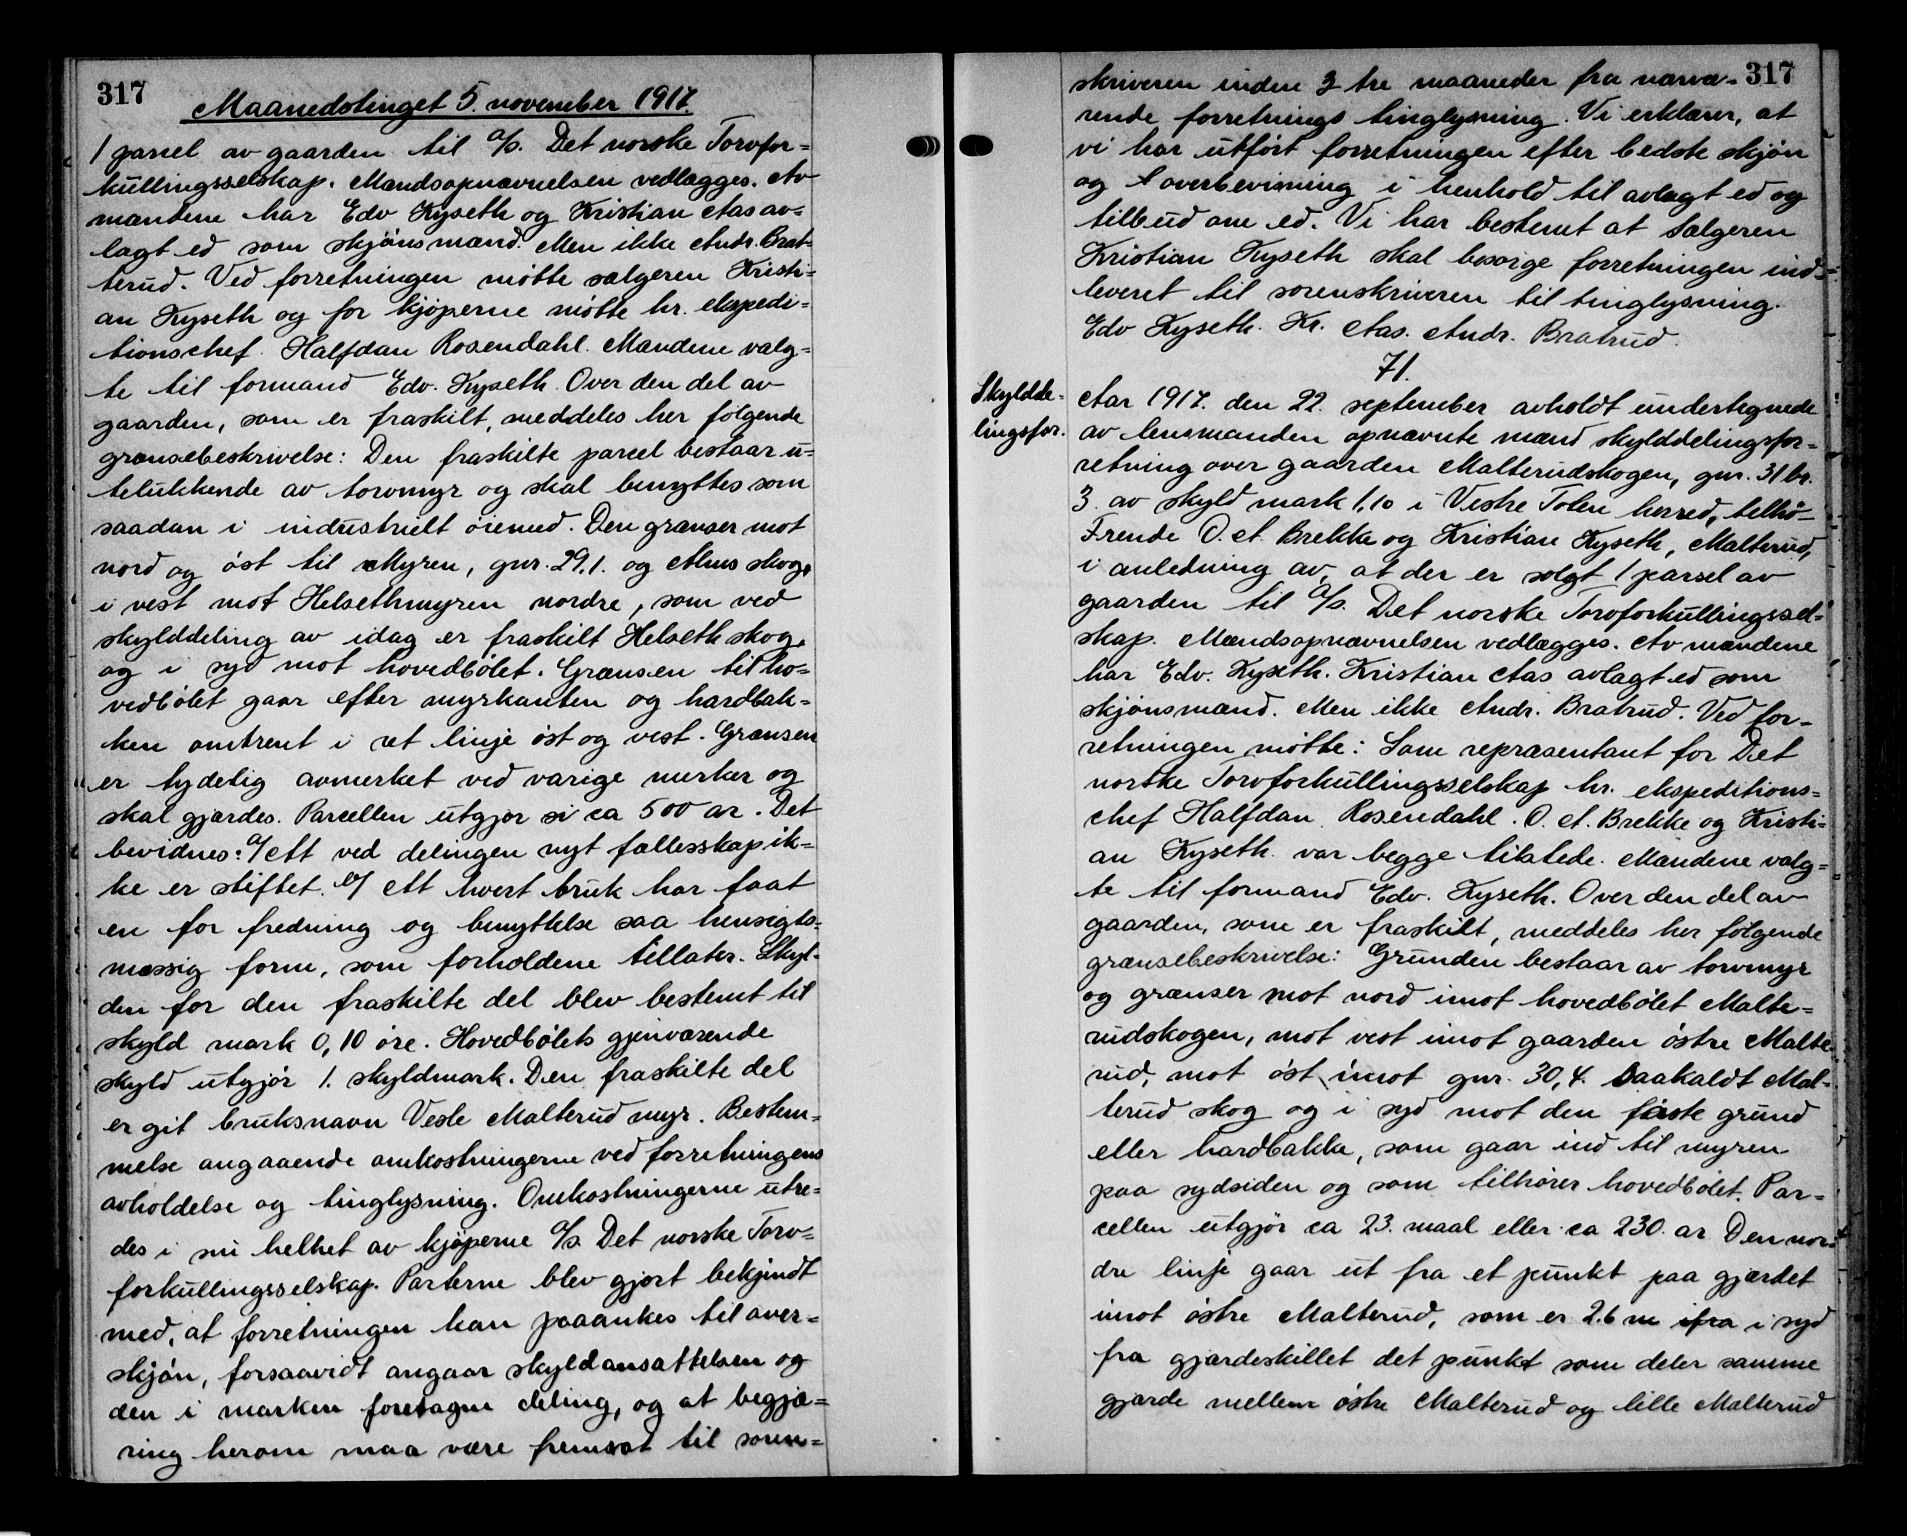 317
Maanedstinget 5. november 1917.
1 parsel av gaarden til A/S. Det norske Torvfor=
kullingsselskap. Mandsopnævnelsen vedlægges. Av
mændene har Edv Kyseth og Kristian Aas av=
lagt ed som skjønsmænd. Men ikke Andr. Brat-
terud. Ved forretningen møtte sælgeren Kristi=
an Kyseth og for kjøperne møtte hr. ekspedi=
tionschef. Halfdan Rosendahl. Mændene valg=
te til formand Edv. Kyseth. Over den del av
gaarden, som er fraskilt, meddeles her følgende
grænsebeskrivelse: Den fraskilte parcel bestaar u=
telukkende av torvmyr og skal benyttes som
saadan i industrielt øiemed. Den grænser mot
nord og øst til Myren, gnr. 29.1. og Alms skog,
i vest mot Helsethmyren nordre, som ved
skylddeling av idag er fraskilt Helseth skog,
og i syd mot hovedbølet. Grænsen til ho=
vedbølet gaar efter myrkanten og hardbak=
ken omtrent i ret linje øst og vest. Grænsen
er tydelig avmerket ved varige merker og
skal gjærdes. Parcellen utgjør si ca 500 ar. Det
bevidnes: a/ Att ved delingen nyt fællesskap ik=
ke er stiftet. b/ Att hvert bruk har faat
en for fredning og benyttelse saa hensigts=
mæssig form, som forholdene tillater. Skyl-
den for den fraskilte del blev bestemt til
skyld mark 0,10 øre. Hovedbølets gjenværende
skyld utgjør 1. skyldmark. Den fraskilte del
er git bruksnavn Vesle Malterud myr. Bestem=
melse angaaende omkostningerne ved forretningens
avholdelse og tinglysning. Omkostningerne utre=
des i sin helhet av kjøperne A/S Det norske Torv=
forkullingsselskap. Parterne blev gjort bekjendt
med, at forretningen kan paaankes til over=
skjøn, forsaavidt angaar skyldansættelsen og
den i marken foretagne deling, og at begjæ=
ring herom maa være fremsat til soren=
317
skriveren inden 3 tre maaneder fra nærvæ=
rende forretnings tinglysning. Vi erklærer, at
vi har utført forretningen efter bedste skjøn
og overbevisning i henhold til avlagt ed og
tilbud om ed. Vi har bestemt at Sælgeren
Kristian Kyseth skal besørge forretningen ind=
leveret til sorenskriveren til tinglysning.
Edv Kyseth. Kr. Aas. Andr. Bratrud.
71.
Skyldde-
lingsfor.
Aar 1917. den 22. september avholdt undertegnede
av lensmanden opnævnte mænd skylddelingsfor=
retning over gaarden Malterudskogen, gnr. 31 br.
3. av skyld mark 1,10 i Vestre Toten herred, tilhø-
rende O. A. Brekke og Kristian Kyseth, Malterud,
i anledning av, at der er solgt 1 parsel av
gaarden til A/S. Det norske Torvforkullingssel=
skap. Mændsopnævnelsen vedlægges. Av mændene
har Edv. Kyseth. Kristian Aas avlagt ed som
skjønsmænd. Men ikke Andr. Bratrud. Ved for=
retningen møtte: Som repræsentant for Det
norske Torvforkullingsselskap hr. ekspeditions=
chef Halfdan Rosendahl. O. A. Brekke og Kristi=
an Kyseth var begge tilstede. Mændene valg=
te til formand Edv. Kyseth. Over den del av
gaarden, som er fraskilt, meddeles her følgende
grænsebeskrivelse: Grunden bestaar av torvmyr
og grænser mot nord imot hovedbølet Malte=
rudskogen, mot vest imot gaarden østre Malte=
rud, mot øst imot gnr. 30,4. Saakaldt Mal-
terud skog og i syd mot den faste grund
eller hardbakke, som gaar ind til myren
paa sydsiden og som tilhører hovedbølet. Par=
cellen utgjør ca 23. maal eller ca 230. ar. Den nor=
dre linje gaar ut fra et punkt paa gjærdet
imot østre Malterud, som er 26 m ifra i syd
fra gjærdeskillet det punkt som deler samme
gjærde mellem østre Malterud og lille Malterud